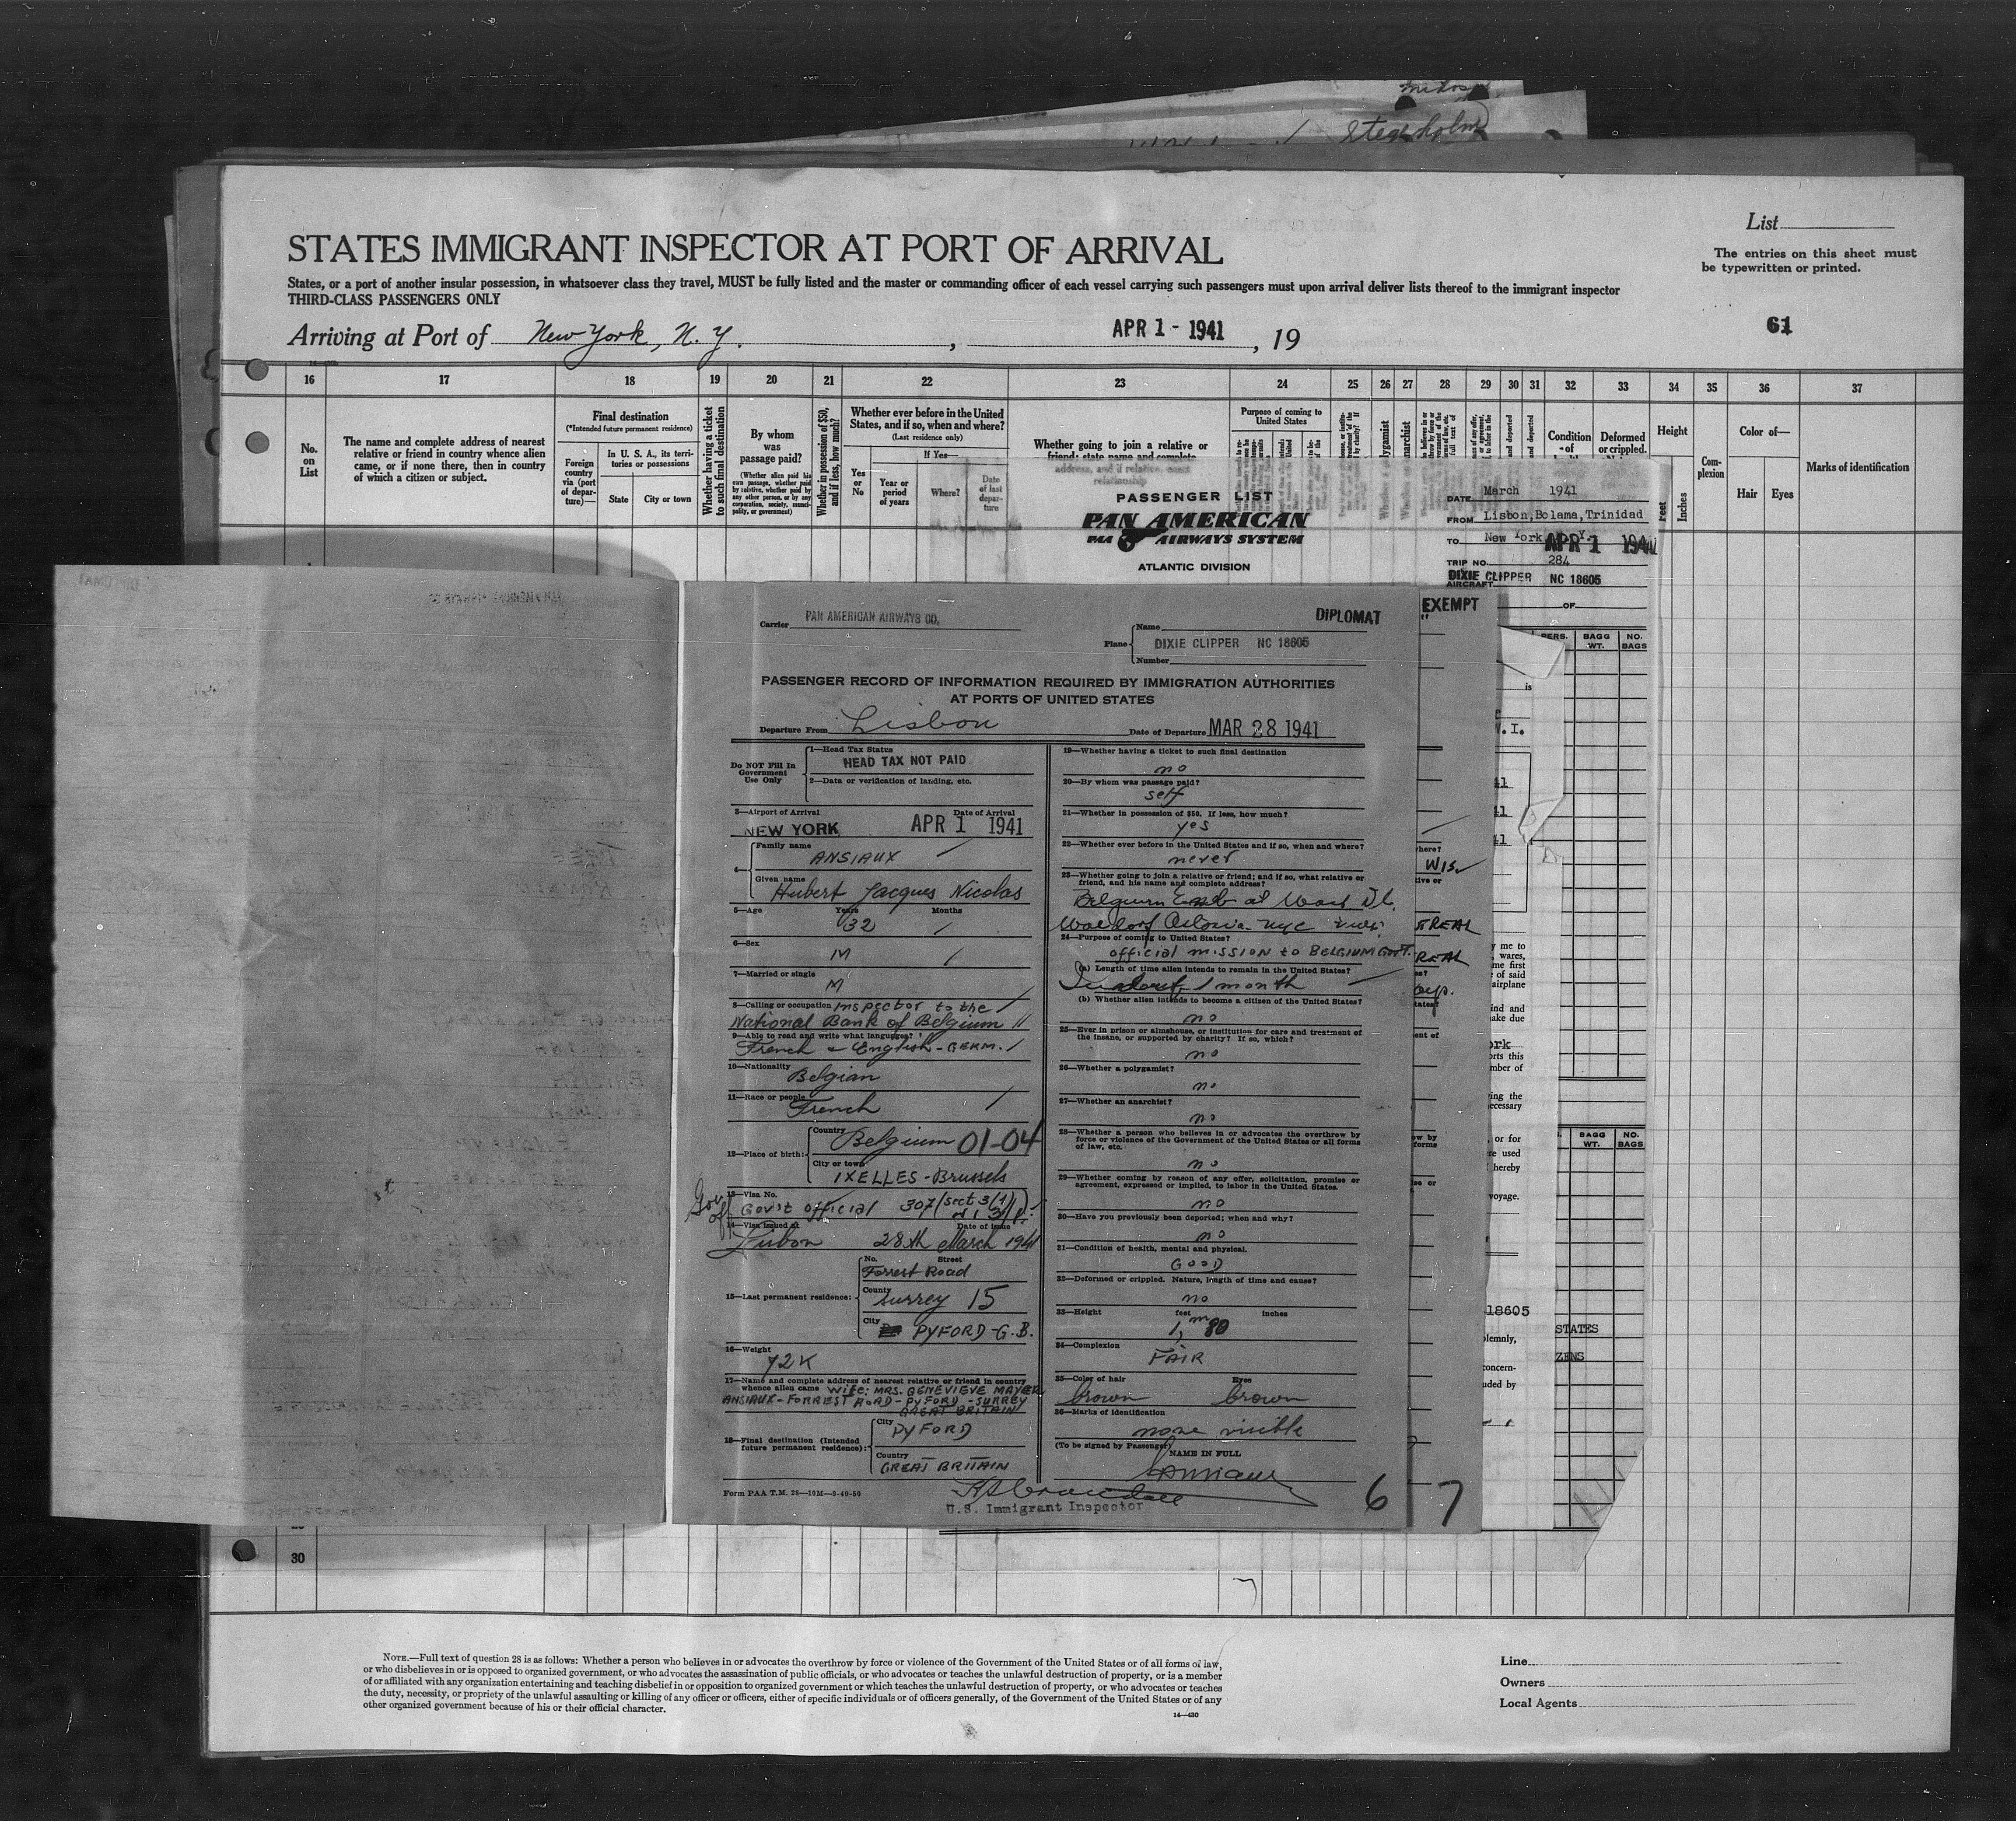 Stockholm
List
STATES IMMIGRANT INSPECTOR AT PORT OF ARRIVAL
The entries on this sheet must
be typewritten or printed.
States, or a port of another insular possession, in whatsoever class they travel, MUST be fully listed and the master or commanding officer of each vessel carrying such passengers must upon arrival deliver lists thereof to the immigrant inspector
THIRD-CLASS PASSENGERS ONLY
Arriving at Port of New York, N. Y. , APR 1 - 1941 , 19
61
16 17 18 19 20 21 22 23 24 25 26 27 28 29 30 31 32 33 34 35 36 37
No.
on
List
The name and complete address of nearest
relative or friend in country whence alien
came, or if none there, then in country
of which a citizen or subject.
Final destination
(*Intended future permanent residence)
Foreign
country
via (port
of depar-
ture)—
In U. S. A., its terri-
tories or possessions
State
City or town
Whether having a ticket
to such final destination
By whom
was
passage paid?
(Whether alien paid his
own passage, whether paid
by relative, whether paid by
any other person, or by any
corporation, society, munici-
pality, or government)
Whether in possession of $50,
and if less, how much?
Whether ever before in the United
States, and if so, when and where?
(Last residence only)
Yes
or
No
If Yes—
Year or
period
of years
Where?
Date
of last
depar-
ture
Whether going to join a relative or
friend; state name and complete
address, and if relative, exact
relationship
Purpose of coming to
United States
Condition
of
Deformed
or crippled.
Height
Feet
Inches
Com-
plexion
Color of—
Hair
Eyes
Marks of identification
PASSENGER LIST
PAN AMERICAN
PAA AIRWAYS SYSTEM
ATLANTIC DIVISION
DATE March 1941
FROM Lisbon,Bolama,Trinidad
TO New York, N. Y. APR 1 1941
TRIP NO. 284
AIRCRAFT DIXIE CLIPPER NC 18605
OF
EXEMPT
PERS.
BAGG
WT.
NO.
BAGS
Carrier PAN AMERICAN AIRWAYS CO.
DIPLOMAT
Plane
Name
DIXIE CLIPPER NC 18605
Number
PASSENGER RECORD OF INFORMATION REQUIRED BY IMMIGRATION AUTHORITIES
AT PORTS OF UNITED STATES
Departure From Lisbon Date of Departure MAR 28 1941
Do NOT Fill In
Government
Use Only
1—Head Tax Status
HEAD TAX NOT PAID
2—Data or verification of landing, etc.
3—Airport of Arrival Date of Arrival
NEW YORK APR 1 1941
4—
Family name
ANSIAUX
Given name
Hubert Jacques Nicolas
5—Age Years Months
32
6—Sex
M
7—Married or single
M
8—Calling or occupation inspector to the
National Bank of Belgium
9—Able to read and write what languages?
French & English - GERM.
10—Nationality
Belgian
11—Race or people
French
12—Place of birth:
Country
Belgium 01-04
City or town
IXELLES - Brussels
13—Visa No.
Gov't official 307 (sect 3(1))
14—Visa issued at Date of issue
Lisbon 28th March 1941
15—Last permanent residence:
No. Street
Forrest Road
County
Surrey 15
City
PYFORD - G.B.
16—Weight
72K
17—Name and complete address of nearest relative or friend in country
whence alien came wife: MRS. GENEVIEVE MAYER
ANSIAUX - FORREST ROAD - PYFORD - SURREY
GREAT BRITAIN
18—Final destination (Intended
future permanent residence):
City
PYFORD
Country
GREAT BRITAIN
Form PAA T.M. 28—10M—9-40-50
19—Whether having a ticket to such final destination
no
20—By whom was passage paid?
self
21—Whether in possession of $50. If less, how much?
yes
22—Whether ever before in the United States and if so, when and where?
never
23—Whether going to join a relative or friend; and if so, what relative or
friend, and his name and complete address?
Belgium Emb at Wash D.C.
Waldorf Astoria NYC
24—Purpose of coming to United States?
official mission to BELGIUM GOVT.
(a) Length of time alien intends to remain in the United States?
1 month
(b) Whether alien intends to become a citizen of the United States?
no
25—Ever in prison or almshouse, or institution for care and treatment of
the insane, or supported by charity? If so, which?
no
26—Whether a polygamist?
no
27—Whether an anarchist?
no
28—Whether a person who believes in or advocates the overthrow by
force or violence of the Government of the United States or all forms
of law, etc.
no
29—Whether coming by reason of any offer, solicitation, promise or
agreement, expressed or implied, to labor in the United States.
no
30—Have you previously been deported; when and why?
no
31—Condition of health, mental and physical.
GOOD
32—Deformed or crippled. Nature, length of time and cause?
no
33—Height feet inches
1,m 80
34—Complexion
FAIR
35—Color of hair Eyes
brown brown
36—Marks of identification
none visible
(To be signed by Passenger)
NAME IN FULL
U.S. Immigrant Inspector
6
7
WIS.
18605
STATES
BAGG
WT.
NO.
BAGS
30
NOTE.—Full text of question 28 is as follows: Whether a person who believes in or advocates the overthrow by force or violence of the Government of the United States or of all forms of law,
or who disbelieves in or is opposed to organized government, or who advocates the assassination of public officials, or who advocates or teaches the unlawful destruction of property, or is a member
of or affiliated with any organization entertaining and teaching disbelief in or opposition to organized government or which teaches the unlawful destruction of property, or who advocates or teaches
the duty, necessity, or propriety of the unlawful assaulting or killing of any officer or officers, either of specific individuals or of officers generally, of the Government of the United States or of any
other organized government because of his or their official character.
14—430
Line
Owners
Local Agents